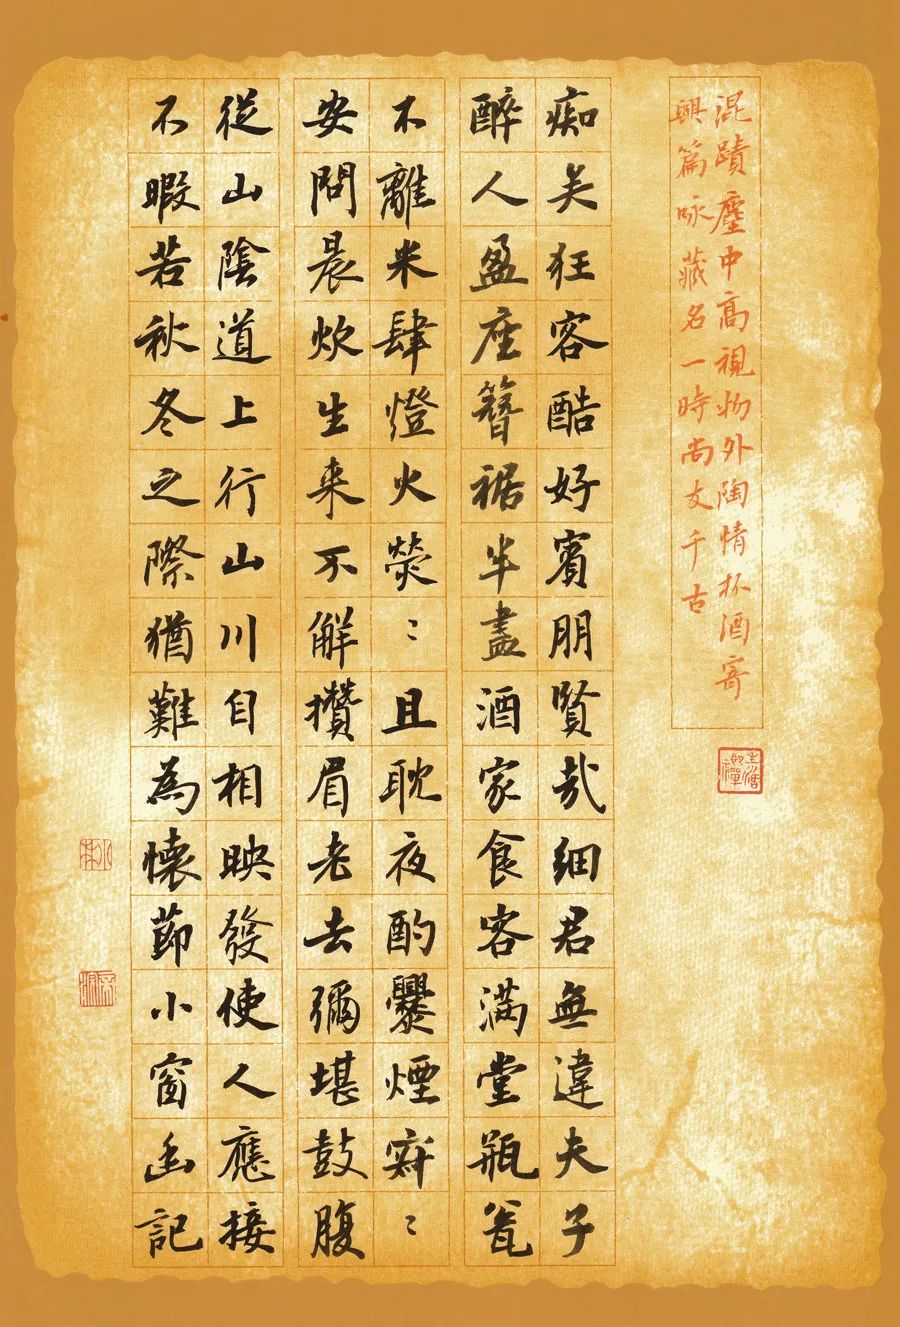 混蹟塵中高視物外陶情杯酒寄
興篇咏藏名一時尚友千古
痴矣狂客酷好賓朋賢哉細君無違夫子
醉人盈座簪裾半盡酒家食客滿堂瓶瓮
不離米肆燈火熒〻且耽夜酌爨煙寂〻
安問晨炊生来不解攢眉老去彌堪鼓腹
從山陰道上行山川自相映發使人應接
不暇若秋冬之際猶難為懷節小窗幽記